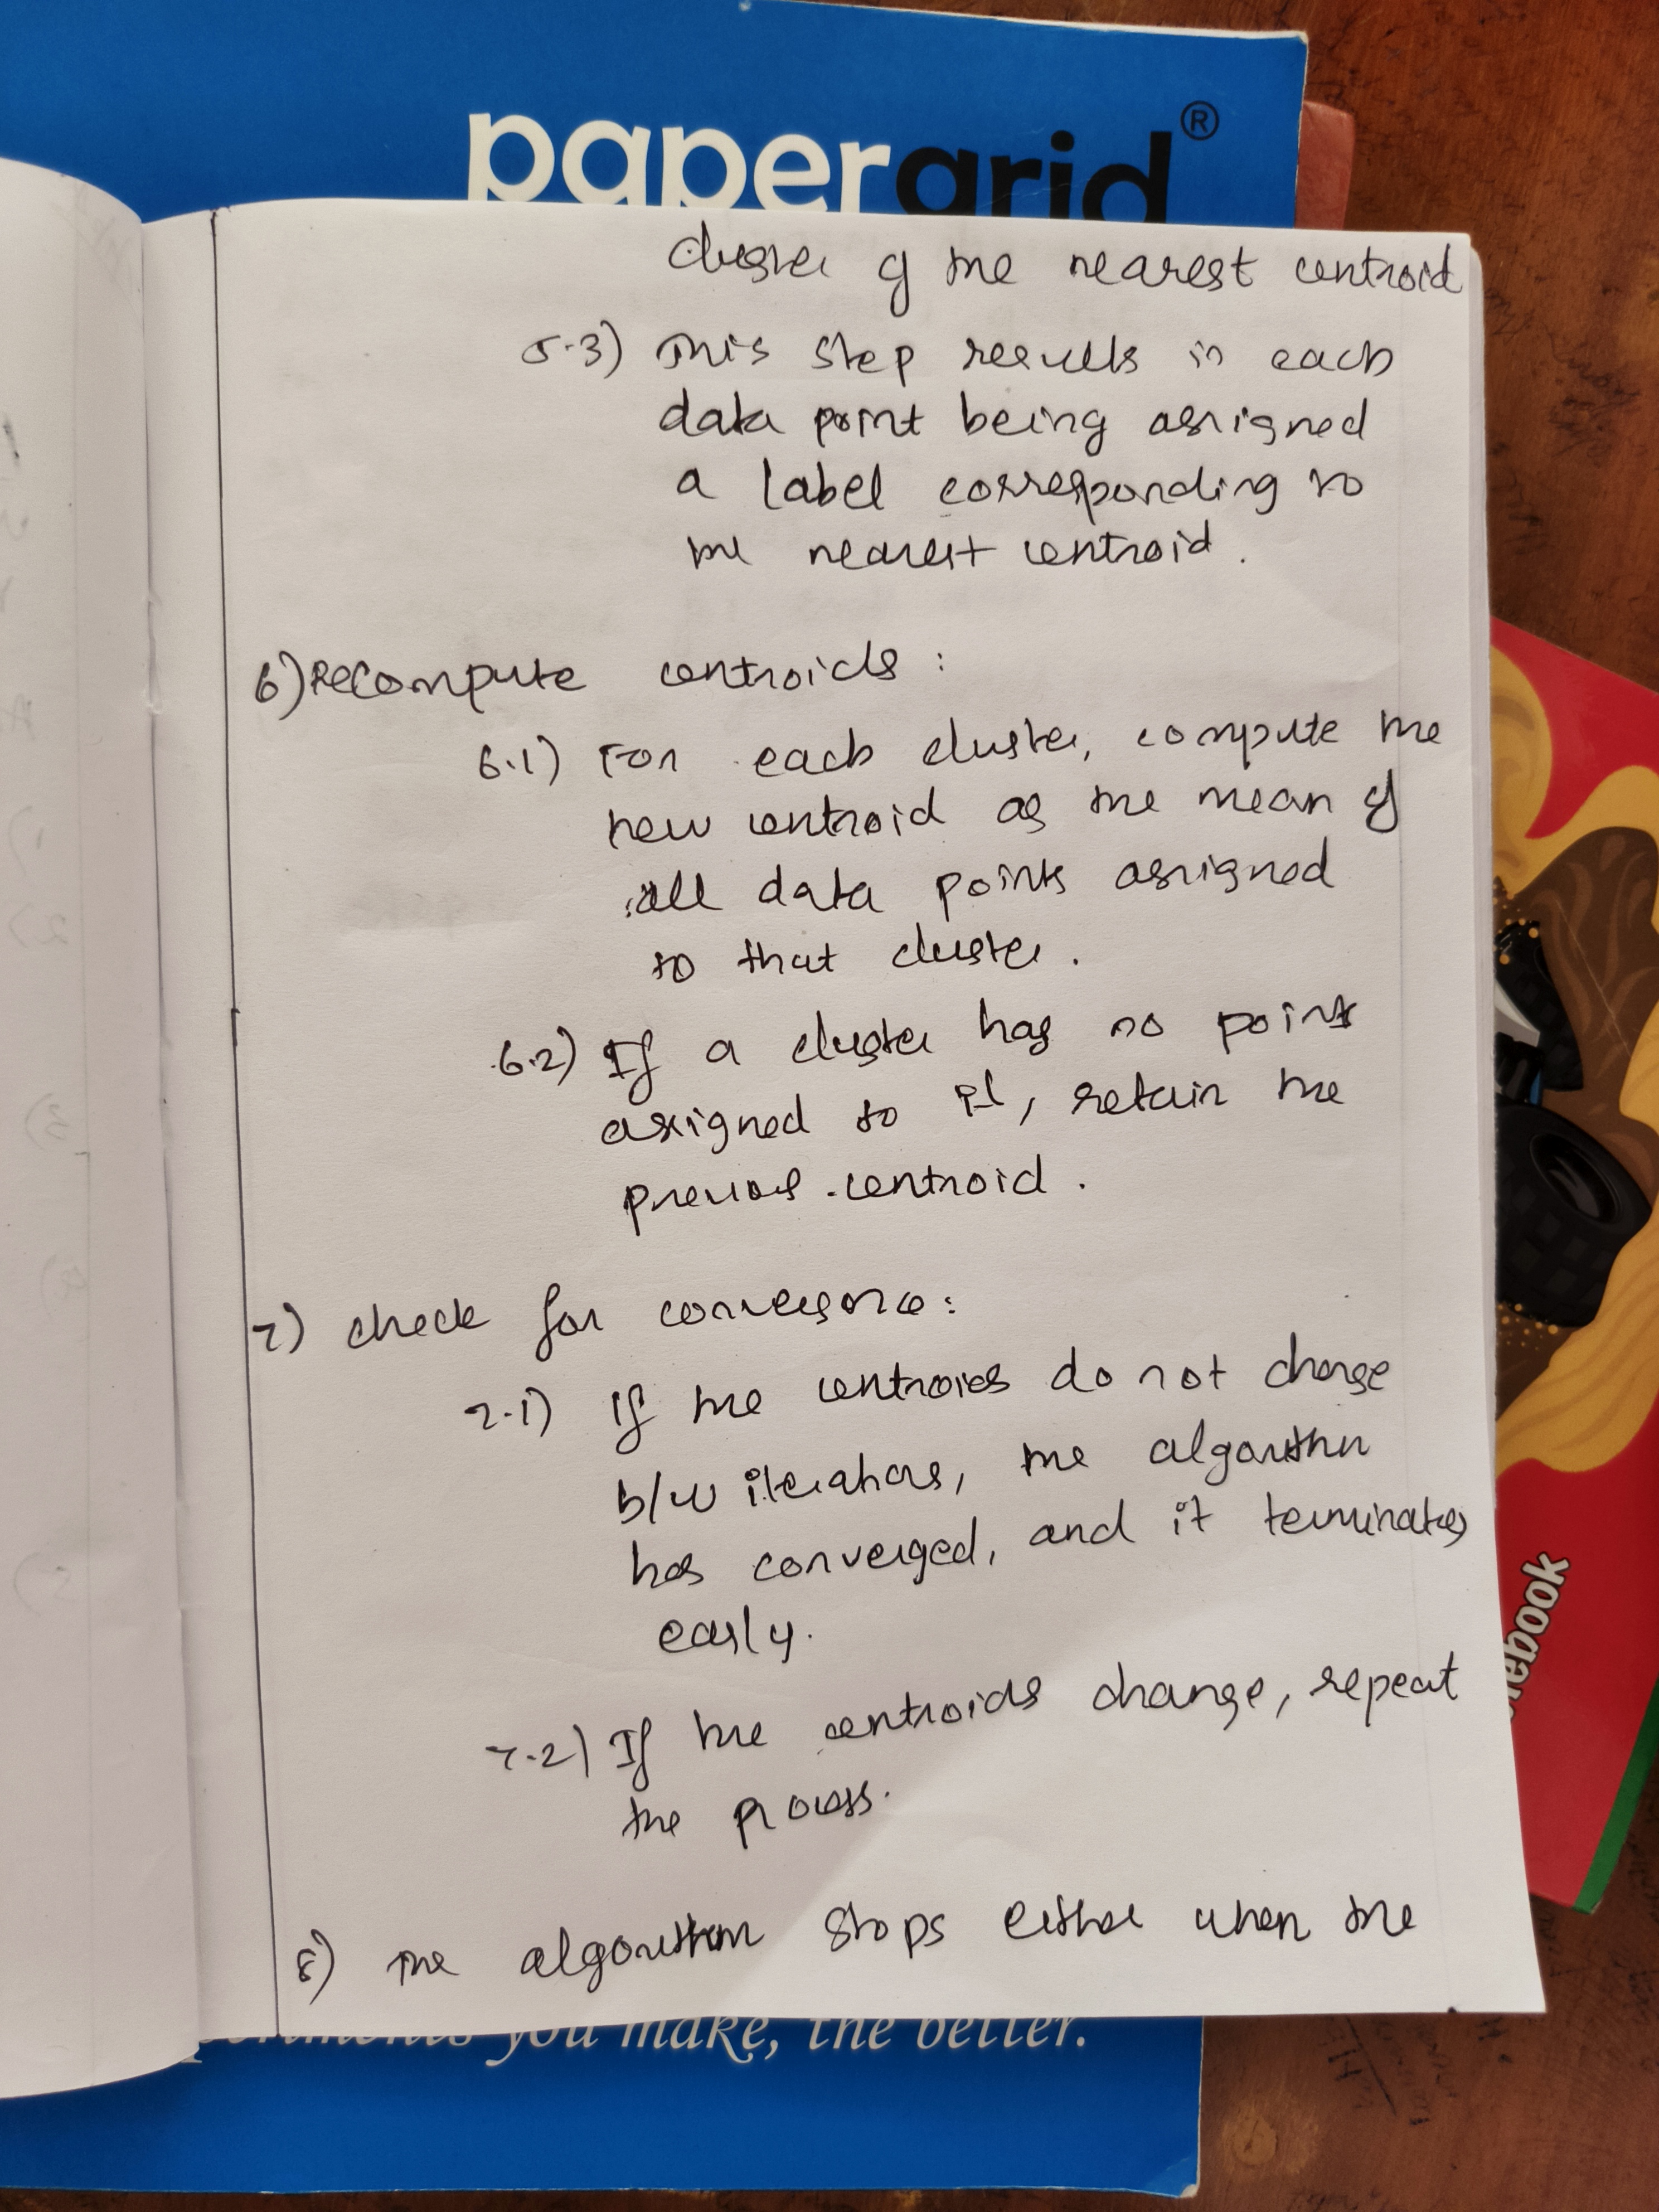 papergrid®
cluster of the nearest centroid
5.3) This step results in each
data point being assigned
a label corresponding to
the nearest centroid.
6) Recompute centroids:
6.1) For each cluster, compute the
new centroid as the mean of
all data points assigned
to that cluster.
6.2) If a cluster has no points
assigned to it, retain the
previous centroid.
7) check for convergence:
7.1) If the centroids do not change
b/w iterations, the algorithm
has converged, and it terminates
early.
7.2) If the centroids change, repeat
the process.
8) The algorithm stops either when the
you make, the better.